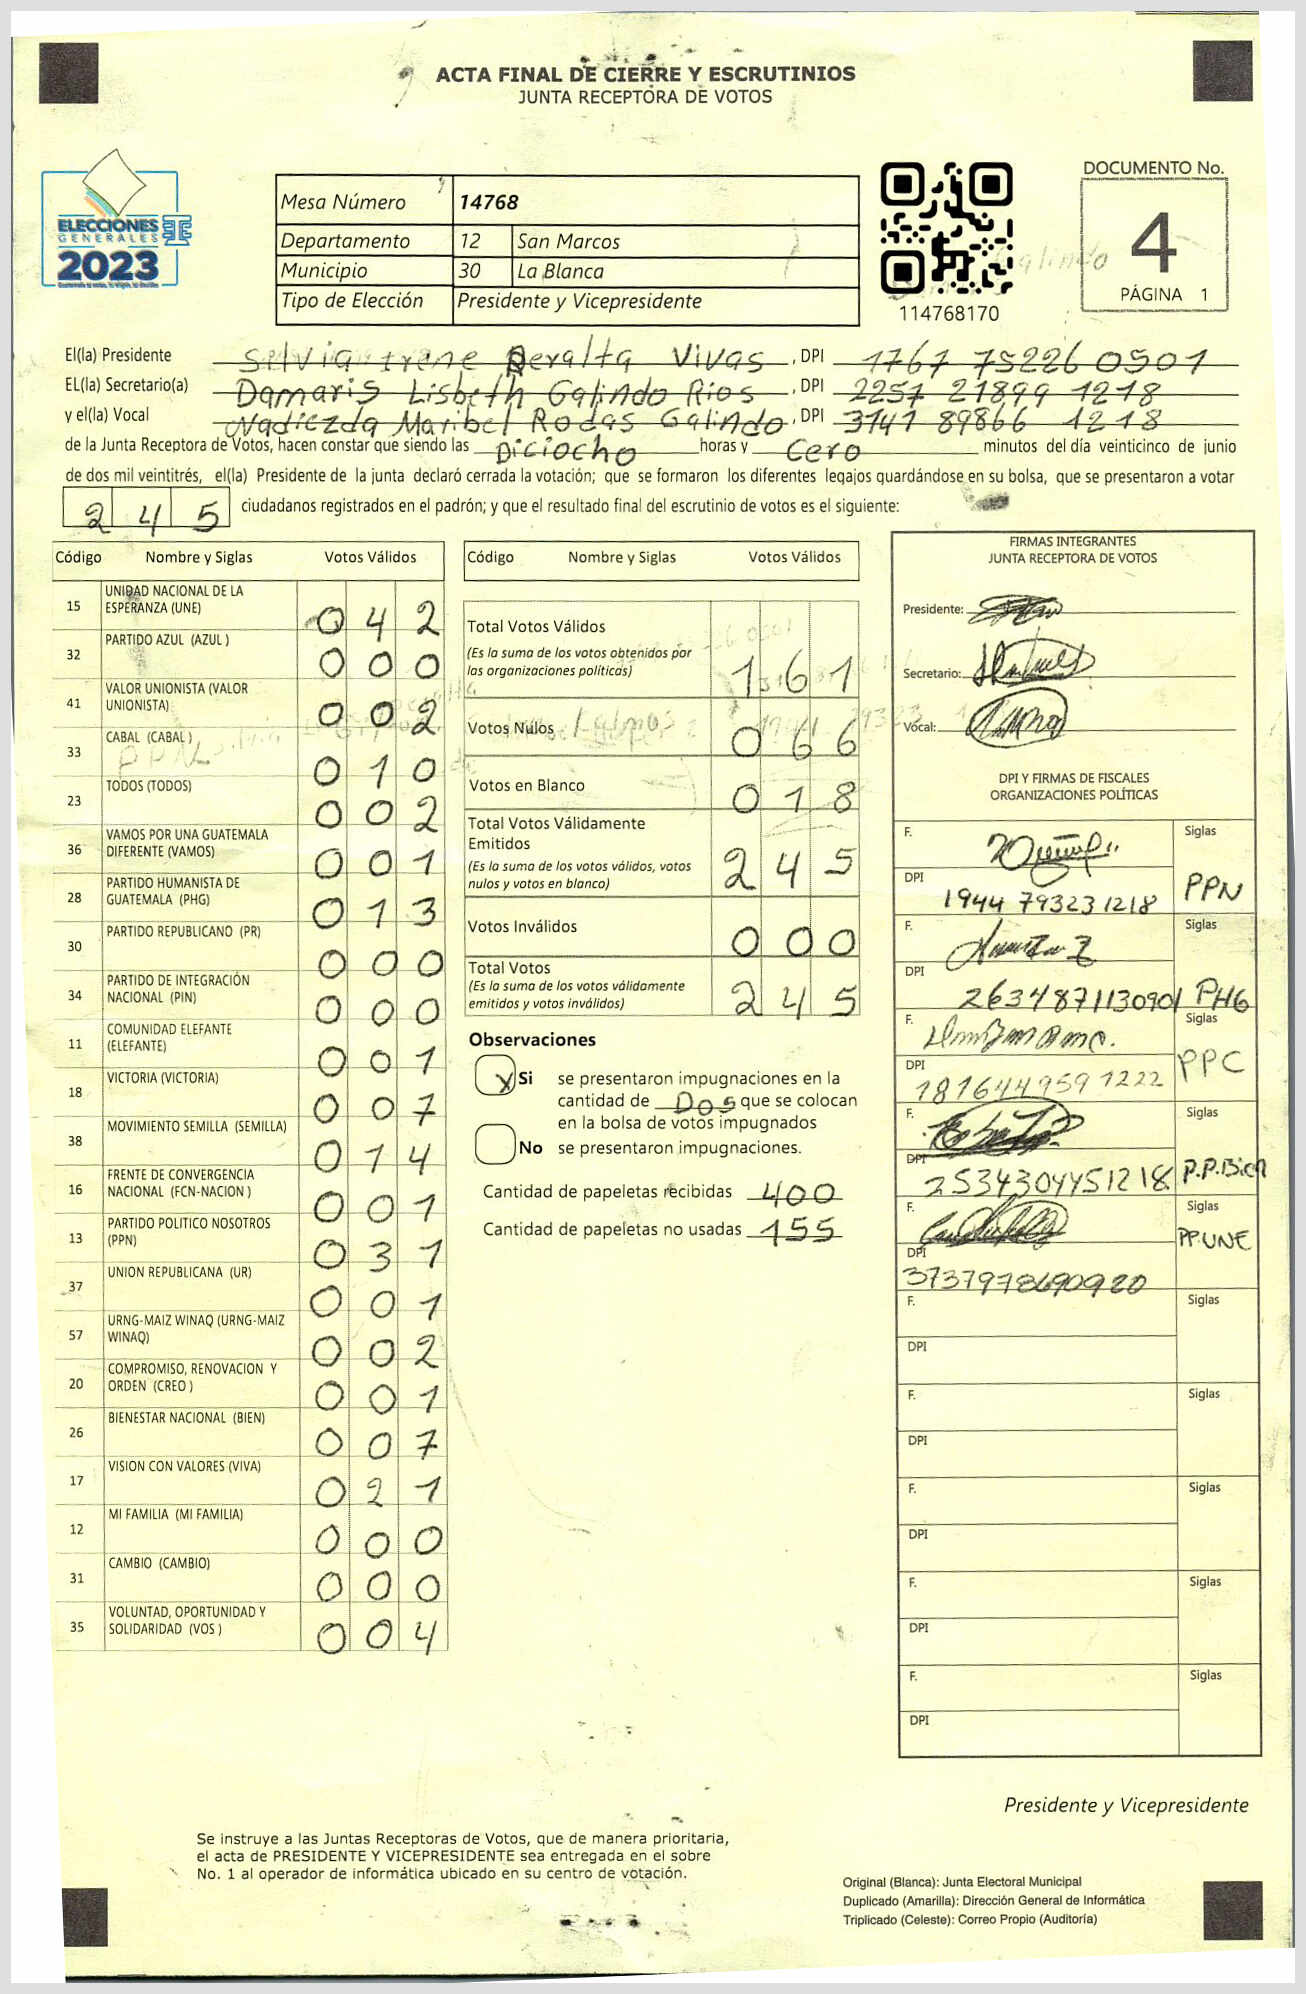 ACTA FINAL DE CIERRE Y ESCRUTINIOS
JUNTA RECEPTORA DE VOTOS
ELECCIONES
GENERALES
2023
Mesa Número 14768
Departamento 12 San Marcos
Municipio 30 La Blanca
Tipo de Elección Presidente y Vicepresidente
114768170
DOCUMENTO No.
4
PÁGINA 1
El(la) Presidente Silvia Irene Peralta Vivas , DPI 1767 75226 0501
EL(la) Secretario(a) Damaris Lisbeth Galindo Rios , DPI 2257 21899 1218
y el(la) Vocal Nadiezda Maribel Rodas Galindo , DPI 3141 89866 1218
de la Junta Receptora de Votos, hacen constar que siendo las Diciocho horas y Cero minutos del día veinticinco de junio
de dos mil veintitrés, el(la) Presidente de la junta declaró cerrada la votación; que se formaron los diferentes legajos guardándose en su bolsa, que se presentaron a votar
245 ciudadanos registrados en el padrón; y que el resultado final del escrutinio de votos es el siguiente:
Código Nombre y Siglas Votos Válidos
15 UNIDAD NACIONAL DE LA
ESPERANZA (UNE) 042
32 PARTIDO AZUL (AZUL ) 000
41 VALOR UNIONISTA (VALOR
UNIONISTA) 002
33 CABAL (CABAL ) 010
23 TODOS (TODOS) 002
36 VAMOS POR UNA GUATEMALA
DIFERENTE (VAMOS) 001
28 PARTIDO HUMANISTA DE
GUATEMALA (PHG) 013
30 PARTIDO REPUBLICANO (PR) 000
34 PARTIDO DE INTEGRACIÓN
NACIONAL (PIN) 000
11 COMUNIDAD ELEFANTE
(ELEFANTE) 001
18 VICTORIA (VICTORIA) 007
38 MOVIMIENTO SEMILLA (SEMILLA) 014
16 FRENTE DE CONVERGENCIA
NACIONAL (FCN-NACION ) 001
13 PARTIDO POLITICO NOSOTROS
(PPN) 031
37 UNION REPUBLICANA (UR) 001
57 URNG-MAIZ WINAQ (URNG-MAIZ
WINAQ) 002
20 COMPROMISO, RENOVACION Y
ORDEN (CREO ) 001
26 BIENESTAR NACIONAL (BIEN) 007
17 VISION CON VALORES (VIVA) 021
12 MI FAMILIA (MI FAMILIA) 000
31 CAMBIO (CAMBIO) 000
35 VOLUNTAD, OPORTUNIDAD Y
SOLIDARIDAD (VOS ) 004
Código Nombre y Siglas Votos Válidos
Total Votos Válidos
(Es la suma de los votos obtenidos por
las organizaciones políticas) 161
Votos Nulos 066
Votos en Blanco 018
Total Votos Válidamente
Emitidos
(Es la suma de los votos válidos, votos
nulos y votos en blanco) 245
Votos Inválidos 000
Total Votos
(Es la suma de los votos válidamente
emitidos y votos inválidos) 245
Observaciones
X Si se presentaron impugnaciones en la
cantidad de Dos que se colocan
en la bolsa de votos impugnados
No se presentaron impugnaciones.
Cantidad de papeletas recibidas 400
Cantidad de papeletas no usadas 155
FIRMAS INTEGRANTES
JUNTA RECEPTORA DE VOTOS
Presidente:
Secretario:
Vocal:
DPI Y FIRMAS DE FISCALES
ORGANIZACIONES POLÍTICAS
F. Siglas
DPI 1944 79323 1218 PPN
F. Siglas
DPI 2634871130901 PHG
F. Siglas
DPI 181644959 1222 PPC
F. Siglas
DPI 2534304451218 P.P.Bien
F. Siglas
DPI 3737978690920 PP.UNE
F. Siglas
DPI
F. Siglas
DPI
F. Siglas
DPI
F. Siglas
DPI
F. Siglas
DPI
Presidente y Vicepresidente
Se instruye a las Juntas Receptoras de Votos, que de manera prioritaria,
el acta de PRESIDENTE Y VICEPRESIDENTE sea entregada en el sobre
No. 1 al operador de informática ubicado en su centro de votación.
Original (Blanca): Junta Electoral Municipal
Duplicado (Amarilla): Dirección General de Informática
Triplicado (Celeste): Correo Propio (Auditoría)